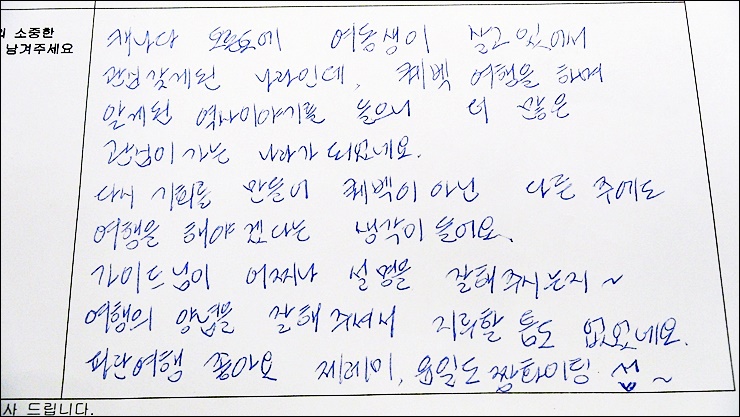 의 소중한
남겨주세요
캐나다 토론토에 여동생이 살고 있어서
관심갖게된 나라인데, 퀘벡 여행을 하며
알게된 역사이야기를 들으니 더 많은
관심이 가는 나라가 되었네요.
다시 기회를 만들어 퀘벡이 아닌 다른 주에도
여행을 해야 겠다는 생각이 들어요.
가이드님이 어찌나 설명을 잘해주시는지~
여행의 양념을 잘해주셔서 지루할 틈도 없었네요.
파란여행 좋아요 제레미, 오일도 짱 화이팅 ~
사 드립니다.